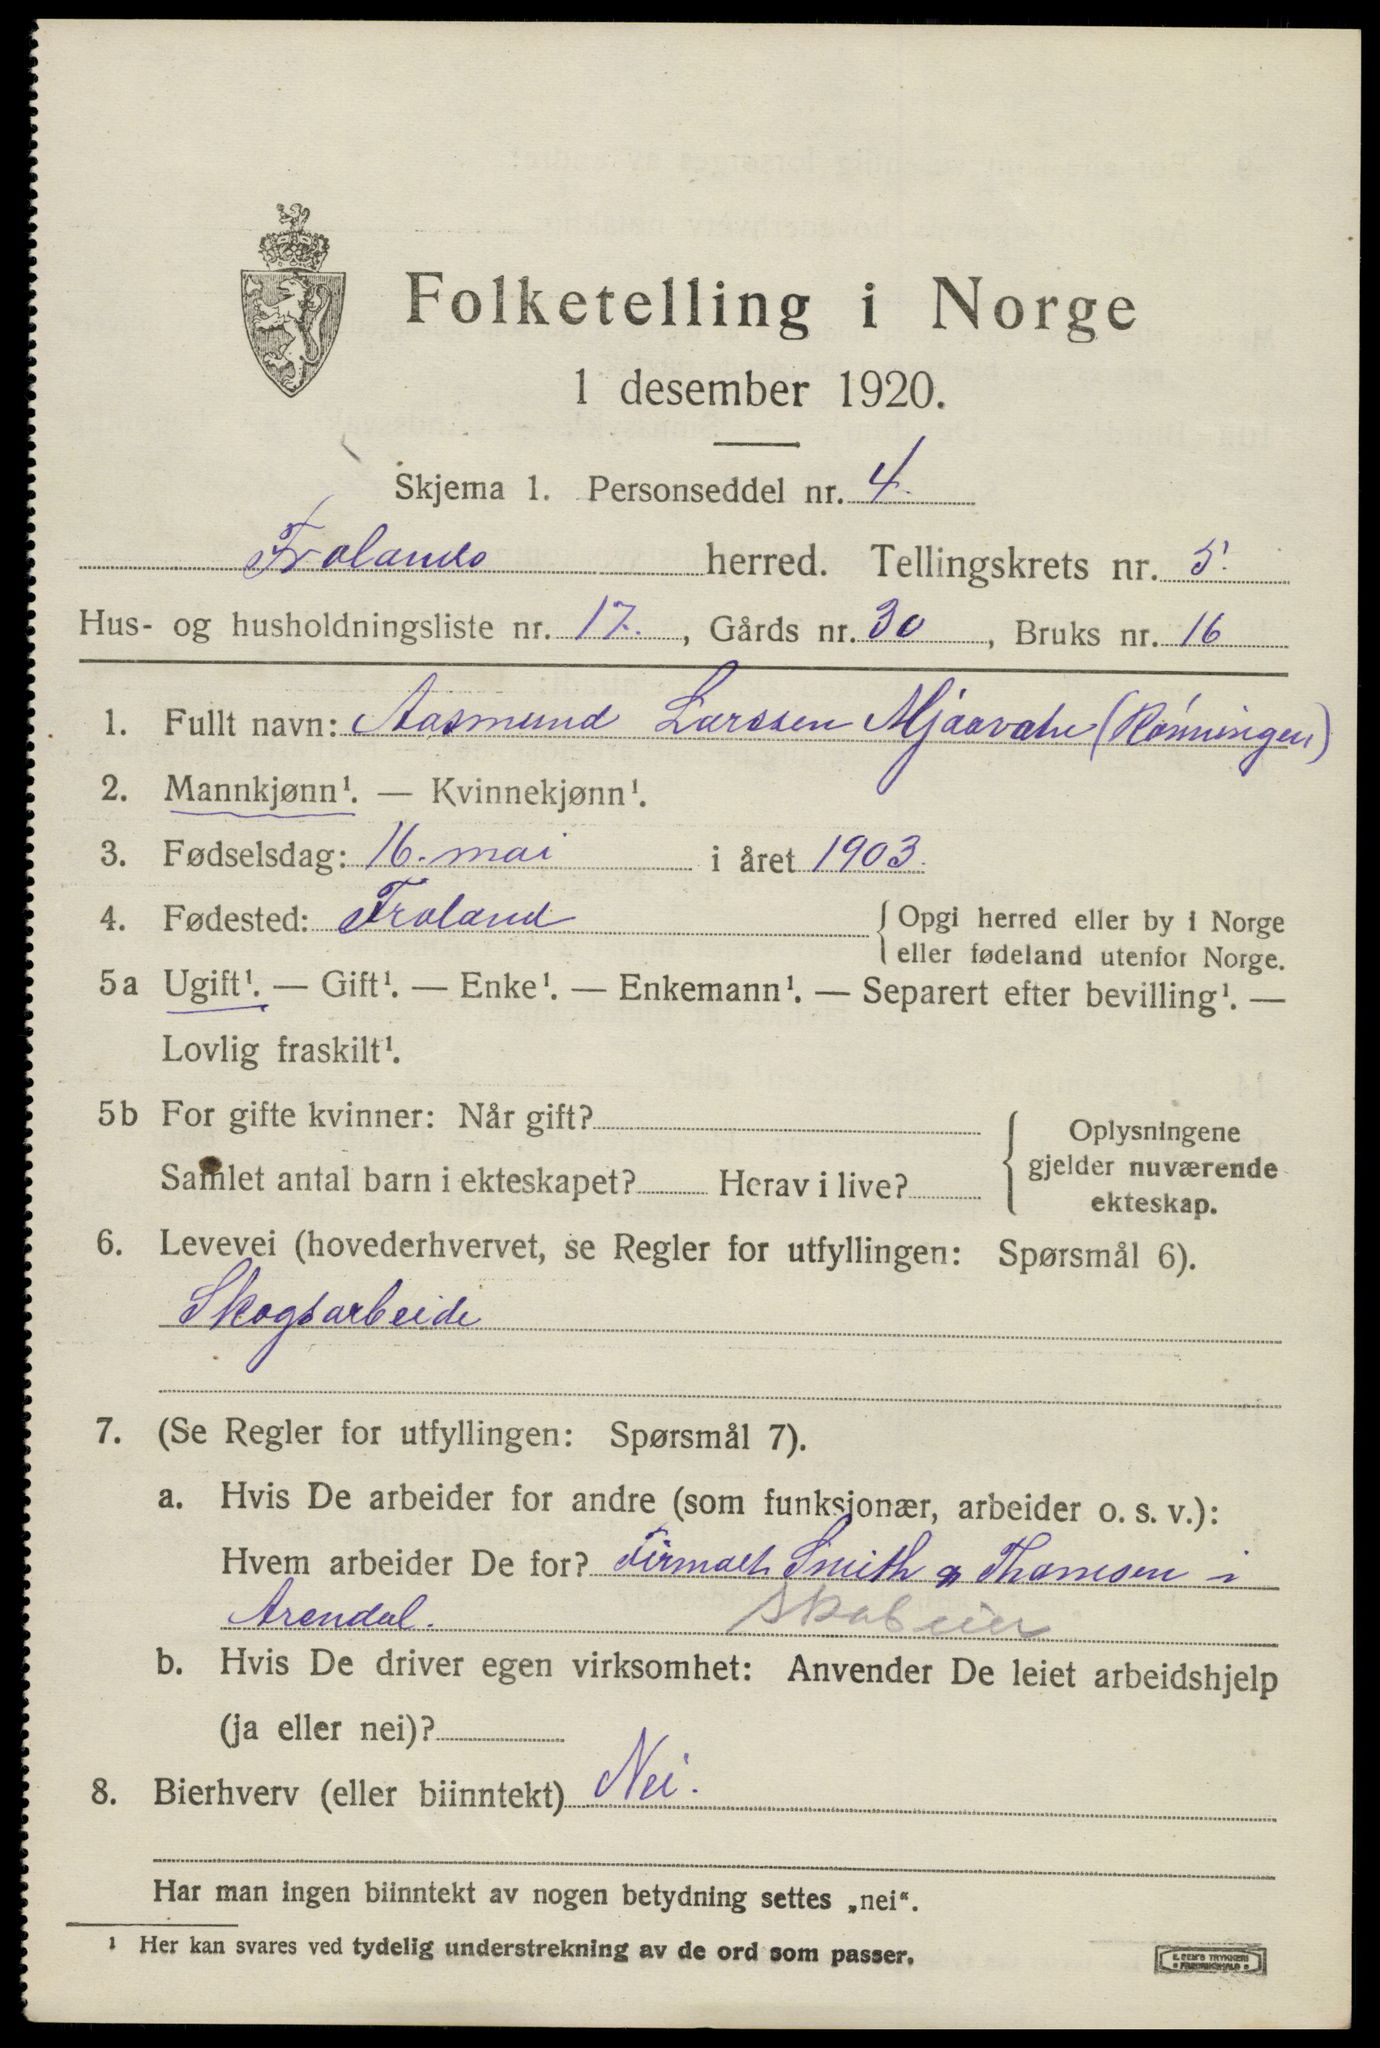 Folketelling i Norge
1 desember 1920.
Skjema 1. Personseddel nr. 4.
Frolands herred. Tellingskrets nr. 5.
Hus- og husholdningsliste nr. 17., Gårds nr. 30, Bruks nr. 16
1. Fullt navn: Aasmund Larssen Mjaavatn (Rønningen)
2. Mannkjønn¹. — Kvinnekjønn¹.
3. Fødselsdag: 16. mai i året 1903.
4. Fødested: Froland { Opgi herred eller by i Norge
eller fødeland utenfor Norge.
5a Ugift¹. — Gift¹. — Enke¹. — Enkemann¹. — Separert efter bevilling¹. —
Lovlig fraskilt¹.
5b For gifte kvinner: Når gift?
Samlet antal barn i ekteskapet? Herav i live?
{ Oplysningene
gjelder nuværende
ekteskap.
6. Levevei (hovederhvervet, se Regler for utfyllingen: Spørsmål 6).
Skogsarbeide
7. (Se Regler for utfyllingen: Spørsmål 7).
a. Hvis De arbeider for andre (som funksjonær, arbeider o. s. v.):
Hvem arbeider De for? Firmaet Smith & Thomesen i
Arendal. Skobeier
b. Hvis De driver egen virksomhet: Anvender De leiet arbeidshjelp
(ja eller nei)?
8. Bierhverv (eller biinntekt) Nei.
Har man ingen biinntekt av nogen betydning settes „nei“.
¹ Her kan svares ved tydelig understrekning av de ord som passer.
E. SEM'S TRYKKERI
FREDRIKSHALD